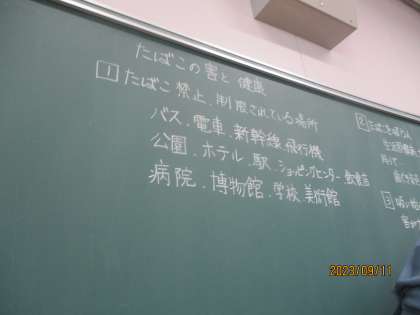 たばこの害と健康
1 たばこ禁止、制度されている場所
バス、電車、新幹線、飛行機
公園、ホテル、駅、ショッピングセンター、飲食店
病院、博物館、学校、美術館
2
3
2023/09/11